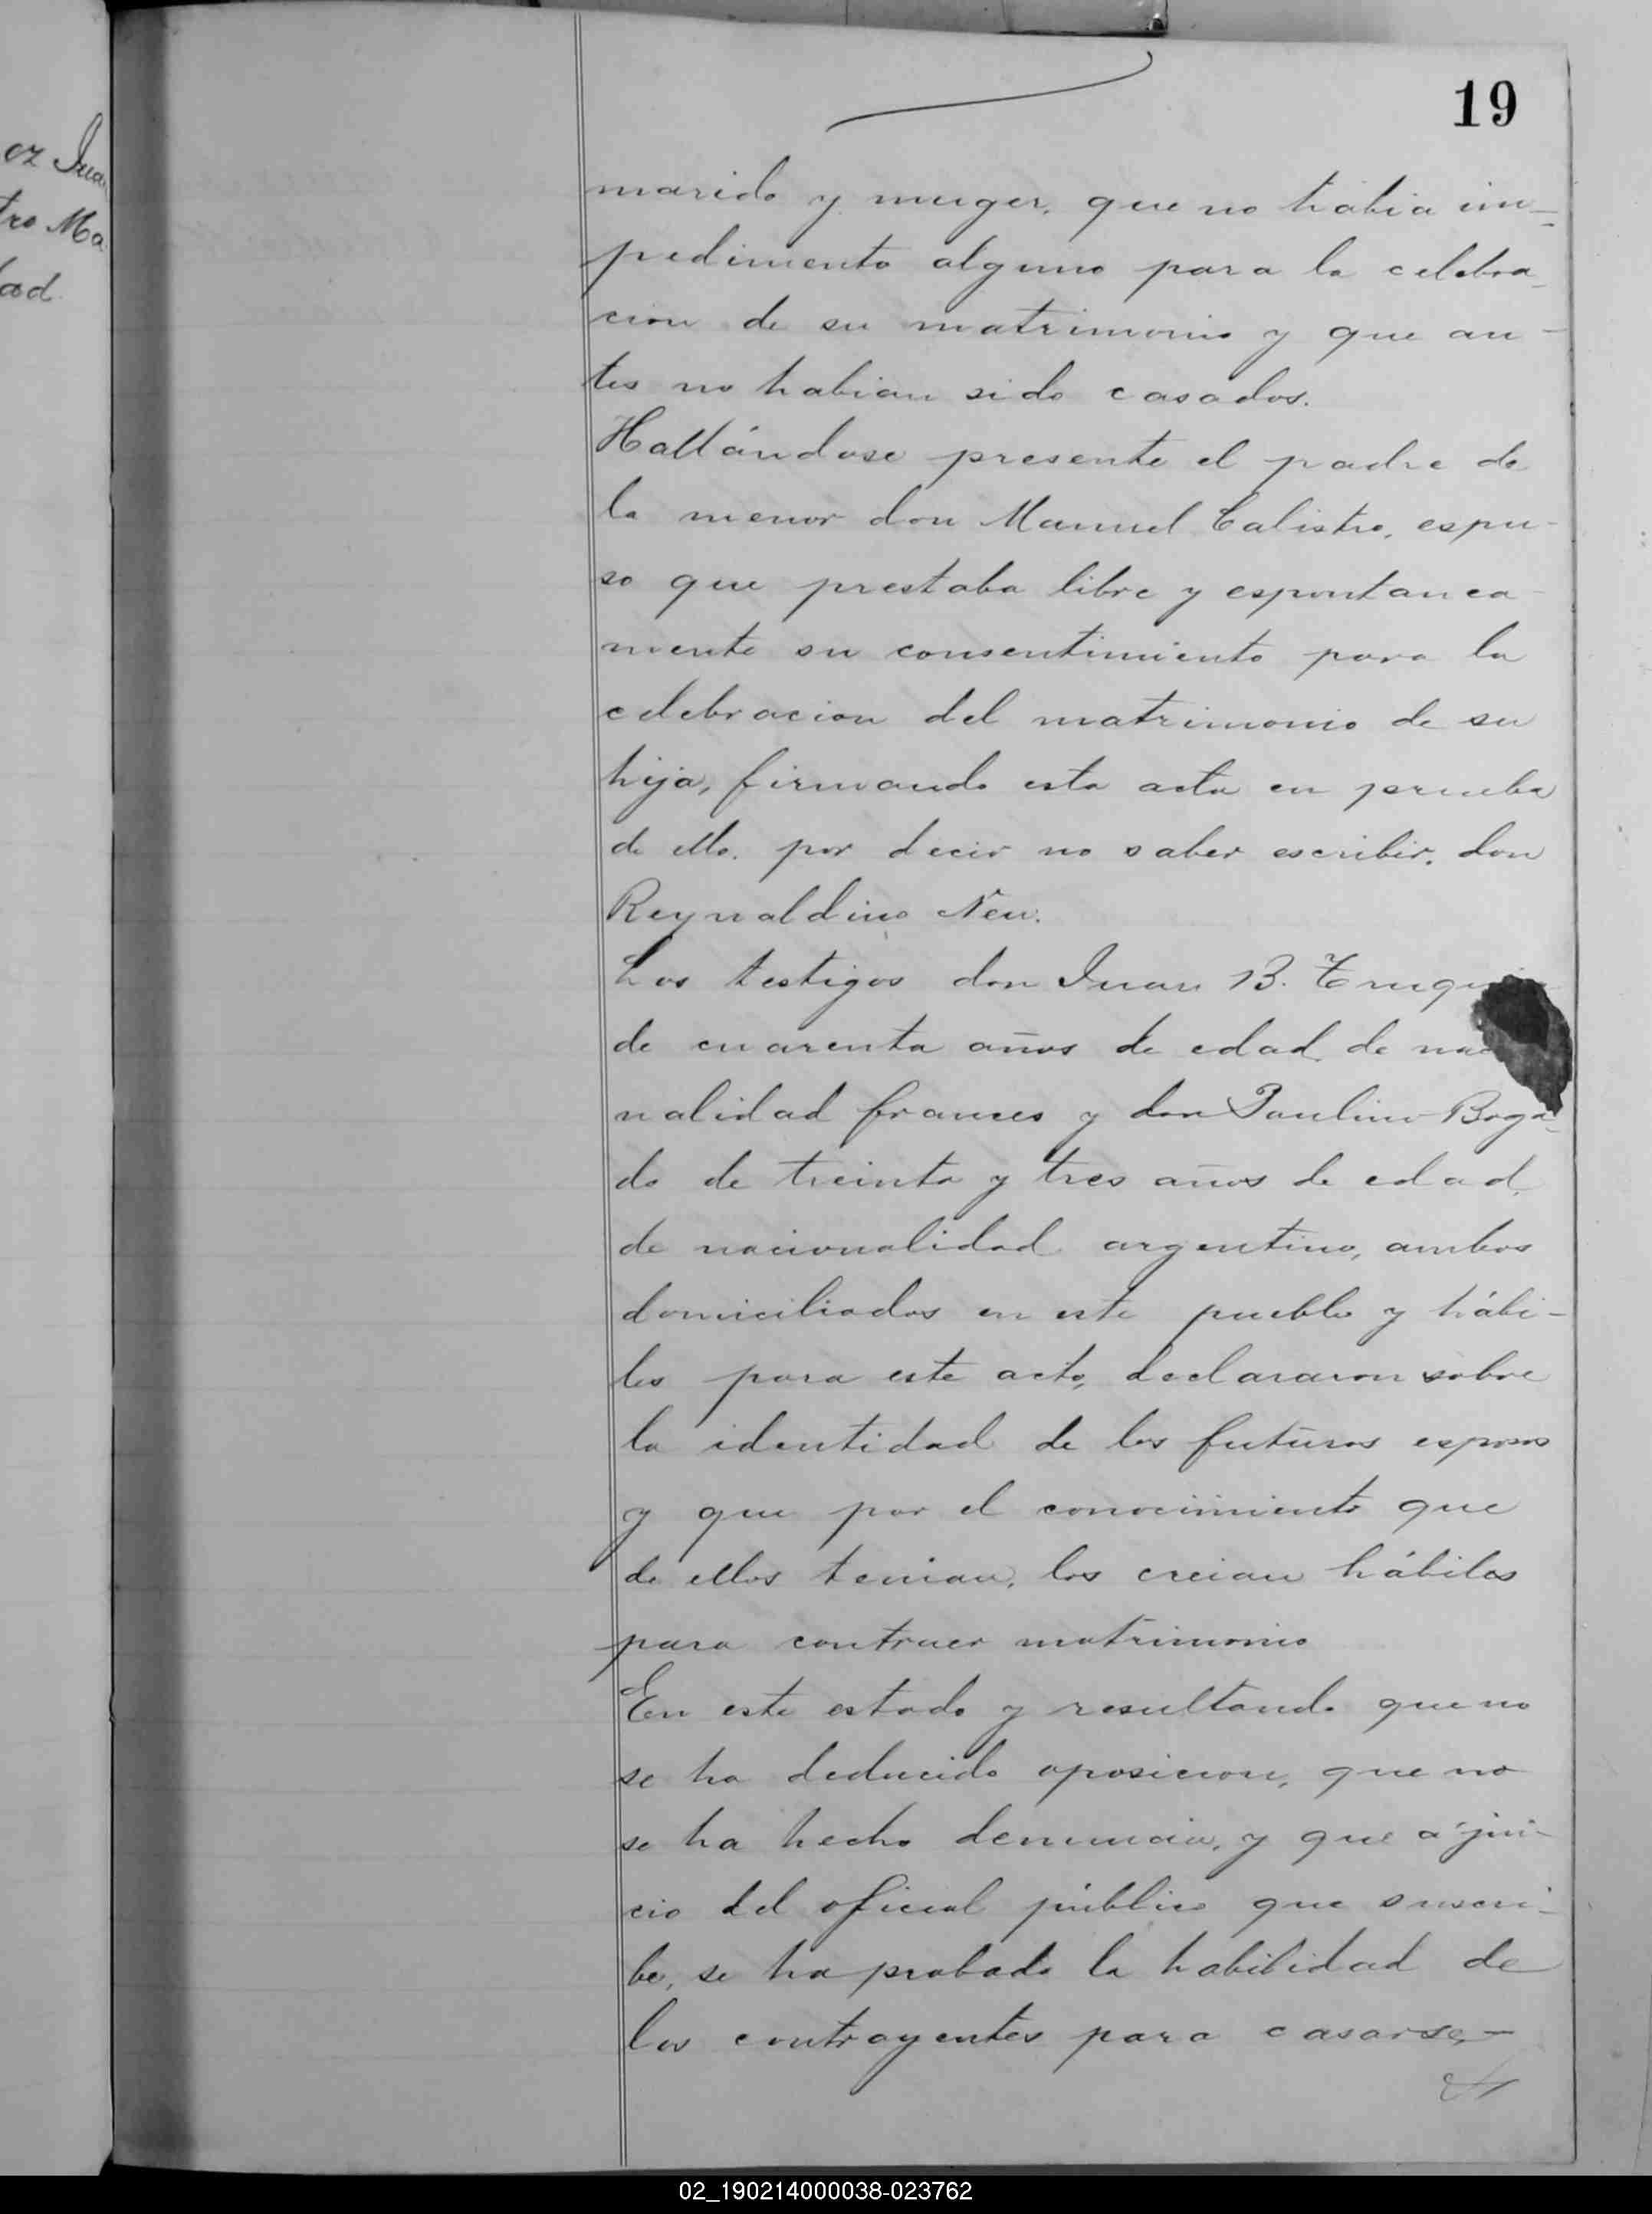 19
oz Jua
tro Ma
dad
marido y muger, que no habia im-
pedimento alguno para la celebra-
cion de su matrimonio y que an-
tes no habian sido casados.
Hallándose presente el padre de
la menor don Manuel Calistro, espu-
so que prestaba libre y espontanea-
mente su consentimiento para la
celebracion del matrimonio de su
hija, firmando esta acta en prueba
de ello, por decir no saber escribir, don
Reynaldino Neu.
Los testigos don Juan B.
de cuarenta años de edad de nacio
nalidad frances y don Paulino Boga-
do de treinta y tres años de edad,
de nacionalidad argentino, ambos
domiciliados en este pueblo y hábi-
les para este acto, declararon sobre
la identidad de los futuros esposos
y que por el conocimiento que
de ellos tenian, los creian hábiles
para contraer matrimonio
En este estado y resultando que no
se ha deducido oposicion, que no
se ha hecho denuncia, y que a jui-
cio del oficial público que suscri-
be, se ha probado la habilidad de
los contrayentes para casarse,-
02_190214000038-023762